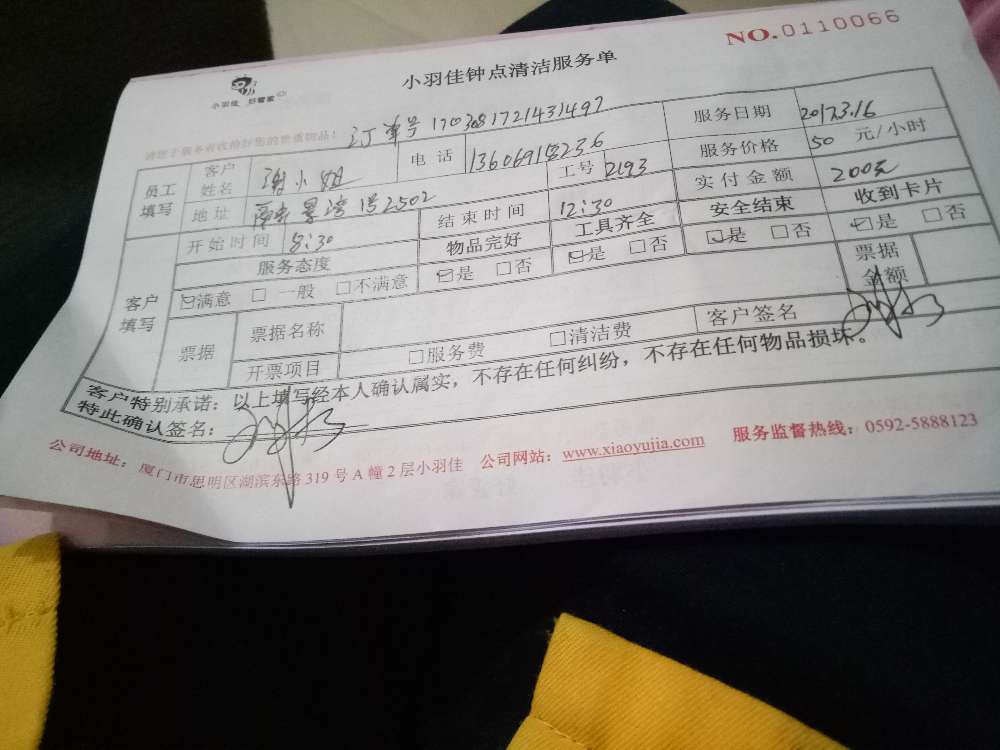 NO.0110066
小羽佳 好管家
小羽佳钟点清洁服务单
订单号
员工填写 客户姓名 谢小姐 电话 服务日期 2017.3.16
地址 1号2502 工号 2193 服务价格 50 元/小时
开始时间 8:30 结束时间 12:30 实付金额 200元
客户填写 服务态度 物品完好 工具齐全 安全结束 收到卡片
☑满意 □一般 □不满意 ☑是 □否 ☑是 □否 ☑是 □否 ☑是 □否
票据 票据名称 票据金额
开票项目 □服务费 □清洁费 客户签名
客户特别承诺：以上填写经本人确认属实，不存在任何纠纷，不存在任何物品损坏。
特此确认签名：
公司地址：厦门市思明区湖滨东路319号A幢2层小羽佳 公司网站：www.xiaoyujia.com 服务监督热线：0592-5888123